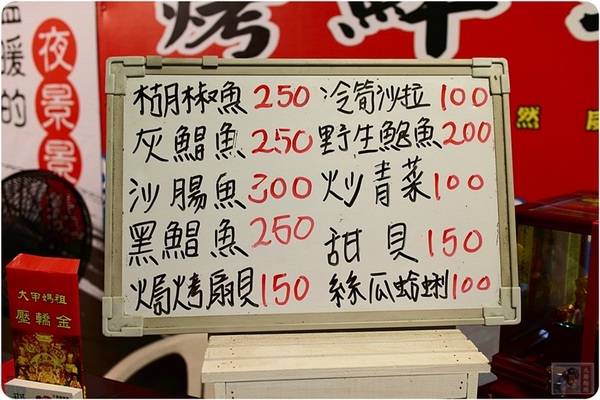 烤鮮
溫暖的
夜景景
胡椒魚 250
冷筍沙拉 100
灰鯧魚 250
野生鮑魚 200
沙腸魚 300
炒青菜 100
黑鯧魚 250
甜貝 150
焗烤扇貝 150
絲瓜蛤蜊 100
然
大甲媽祖
壓轎金